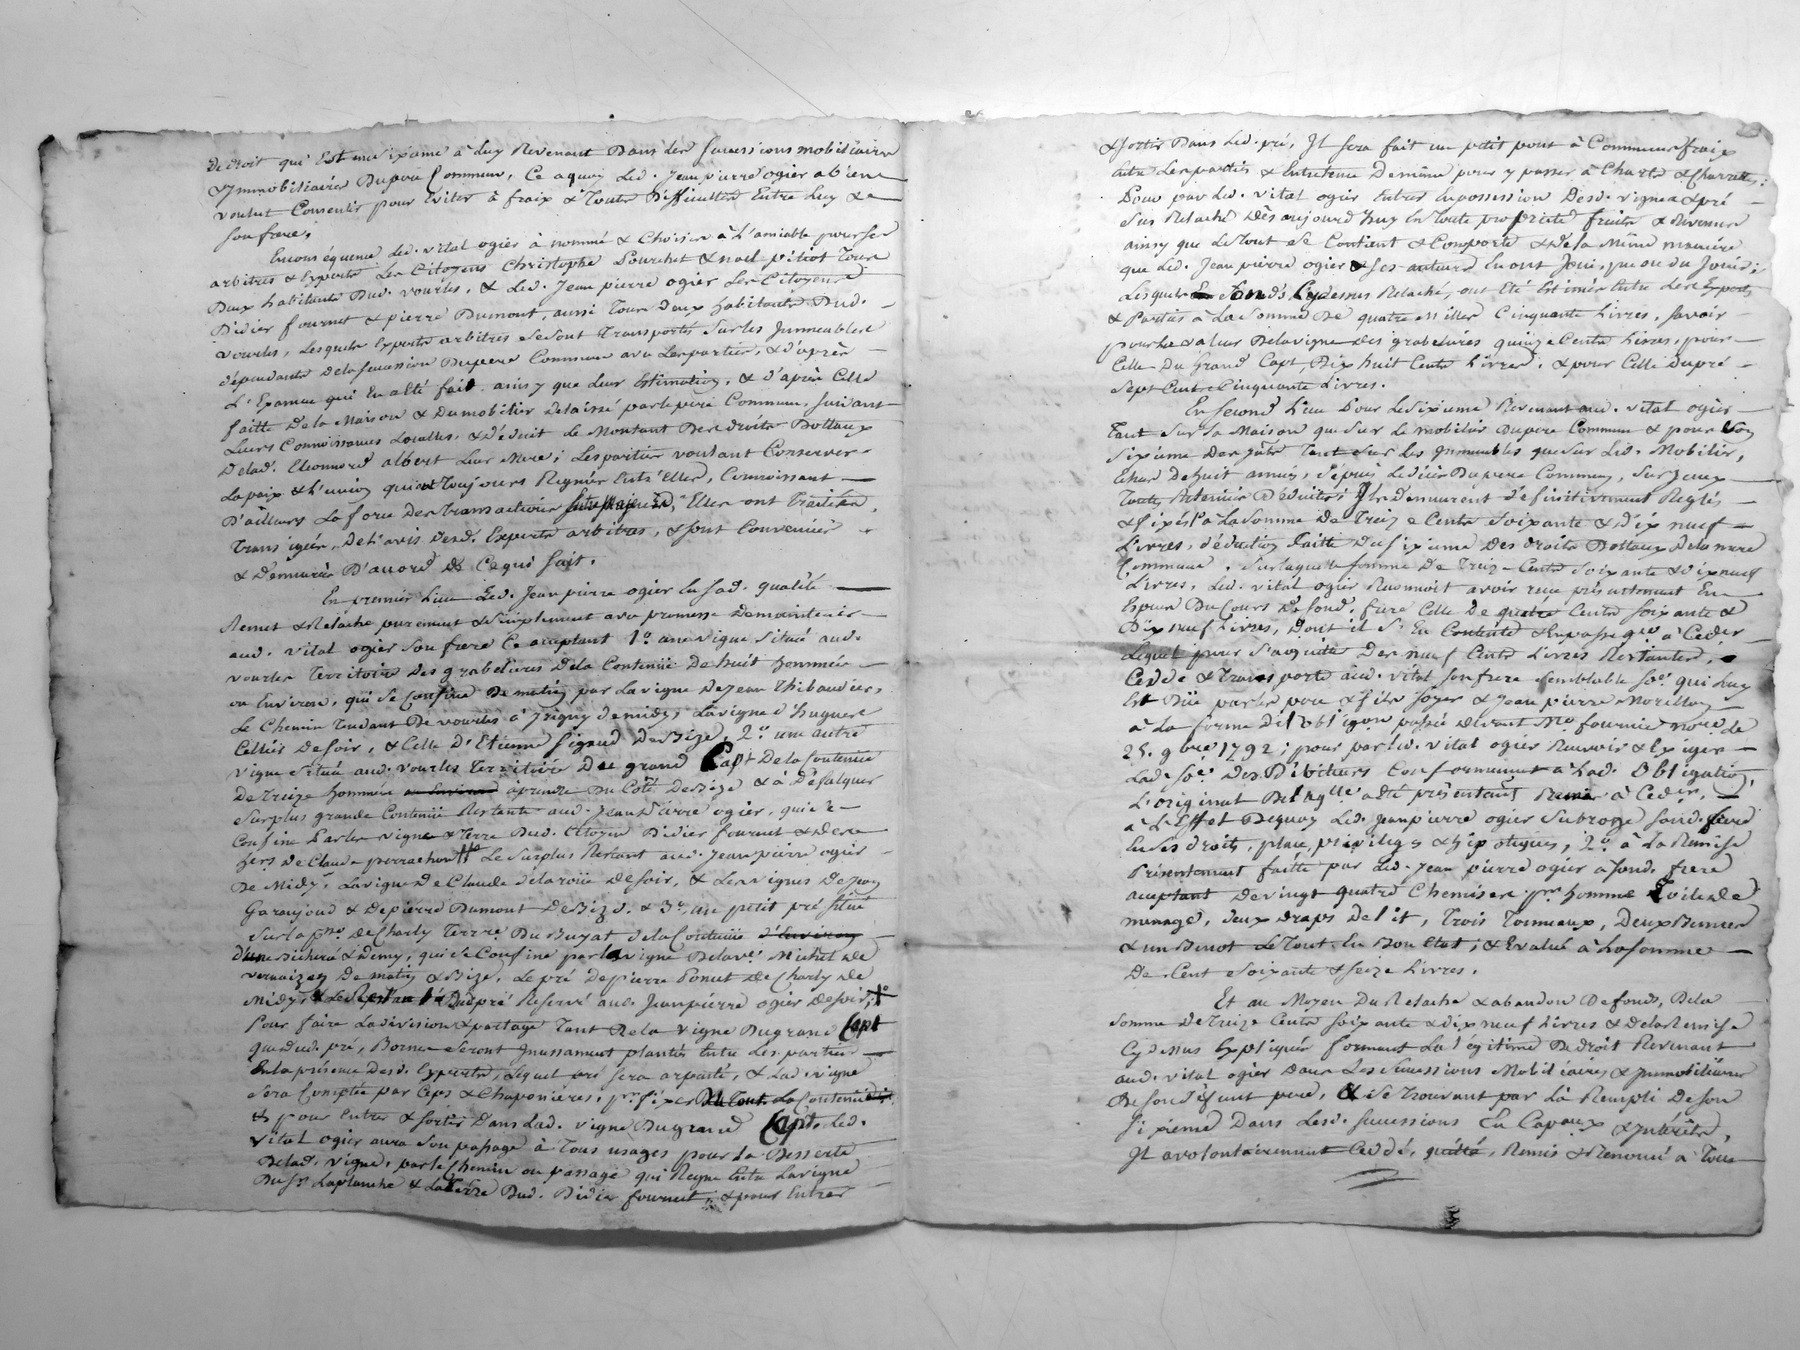 de droit qui Est un sixieme à luy Revenant Dans les successions mobiliaires
& Immobiliaires Du pere Commun, Ce a quoi led. Jean pierre ogier a bien
voulut Consentir pour Eviter à fraix & Toutes Difficultés Entre luy & a
son frere,
En conséquence led. vital ogier à nommé & Choisie à L'amiable pour ses
arbitres & Experts Les Citoyens Christophe Pourchet & noel pitiot Tous
Deux habitants Dud. vourles, & led. Jean pierre ogier les Citoyens
Didier fournet & pierre Dumont, aussi Tous Deux habitants Dud.
vourles, Lesquels Experts arbitres se sont Transportés sur les Immeubles
dépendants de la succession Du pere Commun avec Les parties, & d'après
L'Examen qui En a Eté fait ainsy que leur Estimation, & d'après Celle
faitte De la Maison & Du mobilier delaissé par le pere Commun, suivant
Leurs Connoissances Localles, & déduit le Montant Des droits Dottaux
De lad. Eleonnord albert leur Mere; Les parties voulant Conserver
La paix & l'union qui ont Toujours Regnée Entr'Elles, Connoissant
D'ailleurs La force Des transactions Entre Majeurs, Elles ont Traitées,
Transigées, De l'avis Desd. Experts arbitres, & sont Convenües
& Demeurées D'accord de Ce qui suit.
En premier Lieu Led. Jean pierre ogier En sad. qualité
Remet & Relache purement & simplement avec promesse De maintenir
aud. vital ogier son frere Ce acceptant 1°. une vigne situeé aud.
vourles Territoire Des grabelieres De la Contenüe De huit hommées
ou Environ, qui se Confine De matin par La vigne De Jean Thibaudier,
Le Chemin Tendant De vourles à Irigny de midy, La vigne d'hugues
Cellier De soir, & Celle D'Etienne sigaud De Bize, 2°. une autre
vigne située aud. vourles Territoire Du grand Capt De la Contenüe
De Treize hommées ou Environ à prendre Du Coté De Bize & à Défalquer
surplus grande Contenüe Restante aud. Jean pierre ogier, qui se
Confine Par les vigne & Terre Dud. Citoyen Didier fournet & de ses
hers de Claude perrachon Le surplus Restant aud. Jean pierre ogier
De Midy, La vigne De Claude delaroüe De soir, & Les vignes De Jean
Garaujoud & De pierre Dumont De Bize. & 3°. un petit pré situé
sur la psse. De Charly Terrre Du Buyat de la Contenüe d'Environ
d'une Bicherée & Demy, qui se Confine par la vigne De Michel de
vernaizon De matin & Bize, Le pré De pierre Ponut De Charly De
Midy, & Le Restant Dud pré Reservé aud. Jean pierre ogier De soir;
Pour faire La division & partage Tant De la vigne Du grand Capt
que Dud. pré, Bornes seront Incessament plantés Entre Les parties
En la présence Desd. Experts, Lequel pré sera arpenté, & Lad. vigne
sera Comptée par Ceps & Chaponieres, pr. fixer La Contenüe
& pour Entrer & sortir Dans Lad. vigne Du grand Capt, Led.
vital ogier aura son passage à Tous usages pour la Desserte
De lad. vigne, par le Chemin ou passage qui Regne Entre La vigne
Du sr. Laplanche & La Terre Dud. Didier fournet; & pour Entrer
& sortir Dans Led. pré, Il sera fait un petit pont à Communs fraix
Entre Les parties & Entretenu De même pour y passer à Chars & Charrettes;
Pour par Led. vital ogier Entrer En possession Desd. vignes & pré
sus Relaché Dès aujourd'huy En Toute propriété fruits & Revenus
ainsy que Le Tout se Contient & Comporte & De la même maniére
que Led. Jean pierre ogier & ses auteurs En ont Joüi, peu ou du Joüir;
Lesquels fonds Cydessus Relaché, ont Eté Estimés Entre Les Experts
& Parties à La somme De quatre Milles Cinquante Livres, savoir
pour la valeur De la vigne Des grabelieres quinze Cents Livres, pour
Celle Du Grand Capt, Dix huit Cents Livres, & pour Celle Du pré
sept Cent Cinquante Livres.
En second Lieu Pour Le sixieme Revenant aud. vital ogier
Tant sur la Maison que sur Le mobilier Du pere Commun & pour son
sixieme Des Tant sur Les Immeubles que sur Led. Mobilier,
Echus De huit années, depuis Le déces Du pere Commun, sur Iceux
Toutes Retenües Déduites; Ils demeurent definitivement Reglés
& fixés à La somme De Treize Cents soixante & dix neuf
Livres, déduction faitte Du sixieme Des droits Dottaux De la mere
Commune. sur laquelle somme De Treize Cents soixante & dix neuf
Livres, Led. vital ogier Reconnoit avoir reçu présentement En
Especes Du Cours De sond. frere Celle De quatre Cents soixante &
Dix neuf Livres, Dont il s'En Contente & En passe qce. à Ceder
Lequel pour s'acquitter Des neuf Cents Livres Restantes,
Cedde & Transporte aud. vital son frere semblable soe. qui Luy
Est Düe par les pere & fils soyer & Jean pierre Morillon
à La forme De l'obligon. passée Devant Me. fournier nore. de
25. 9bre. 1792; pour par Led. vital ogier Recevoir & Exiger
Lad. soe. Des Débiteurs Conformement à Lad. obligation,
L'original De laqlle. a été présentent. Remis à Ceder,
à L'Effet Dequoy Led. Jean pierre ogier subroge sond. frere
En ses droits, place, privileges & hipoteques, 2°. à La Remise
Présentement faitte par Led. Jean pierre ogier a sond. frere
acceptant De vingt quatre Chemises pr. homme Toile de
menage, Deux Draps De lit, Trois Tonneaux, Deux Bennes
& un Benot Le Tout En Bon Etat, & Evalué à La somme
De Cent soixante & seize Livres.
Et au Moyen Du Relaché & abandon De fonds, De la
somme De Treize Cents soixante & dix neuf Livres & De la Remise
Cy dessus Expliquée formant La légitime De droit Revenant
aud. vital ogier Dans Les successions Mobiliaires & Immobiliaires
De son défunt pere, & se Trouvant par Là Rempli De son
sixieme Dans Lesd. successions En Capaux & Intérêts,
Il a volontairement Ceddé, quitté, Remis & Renoncé à Tous